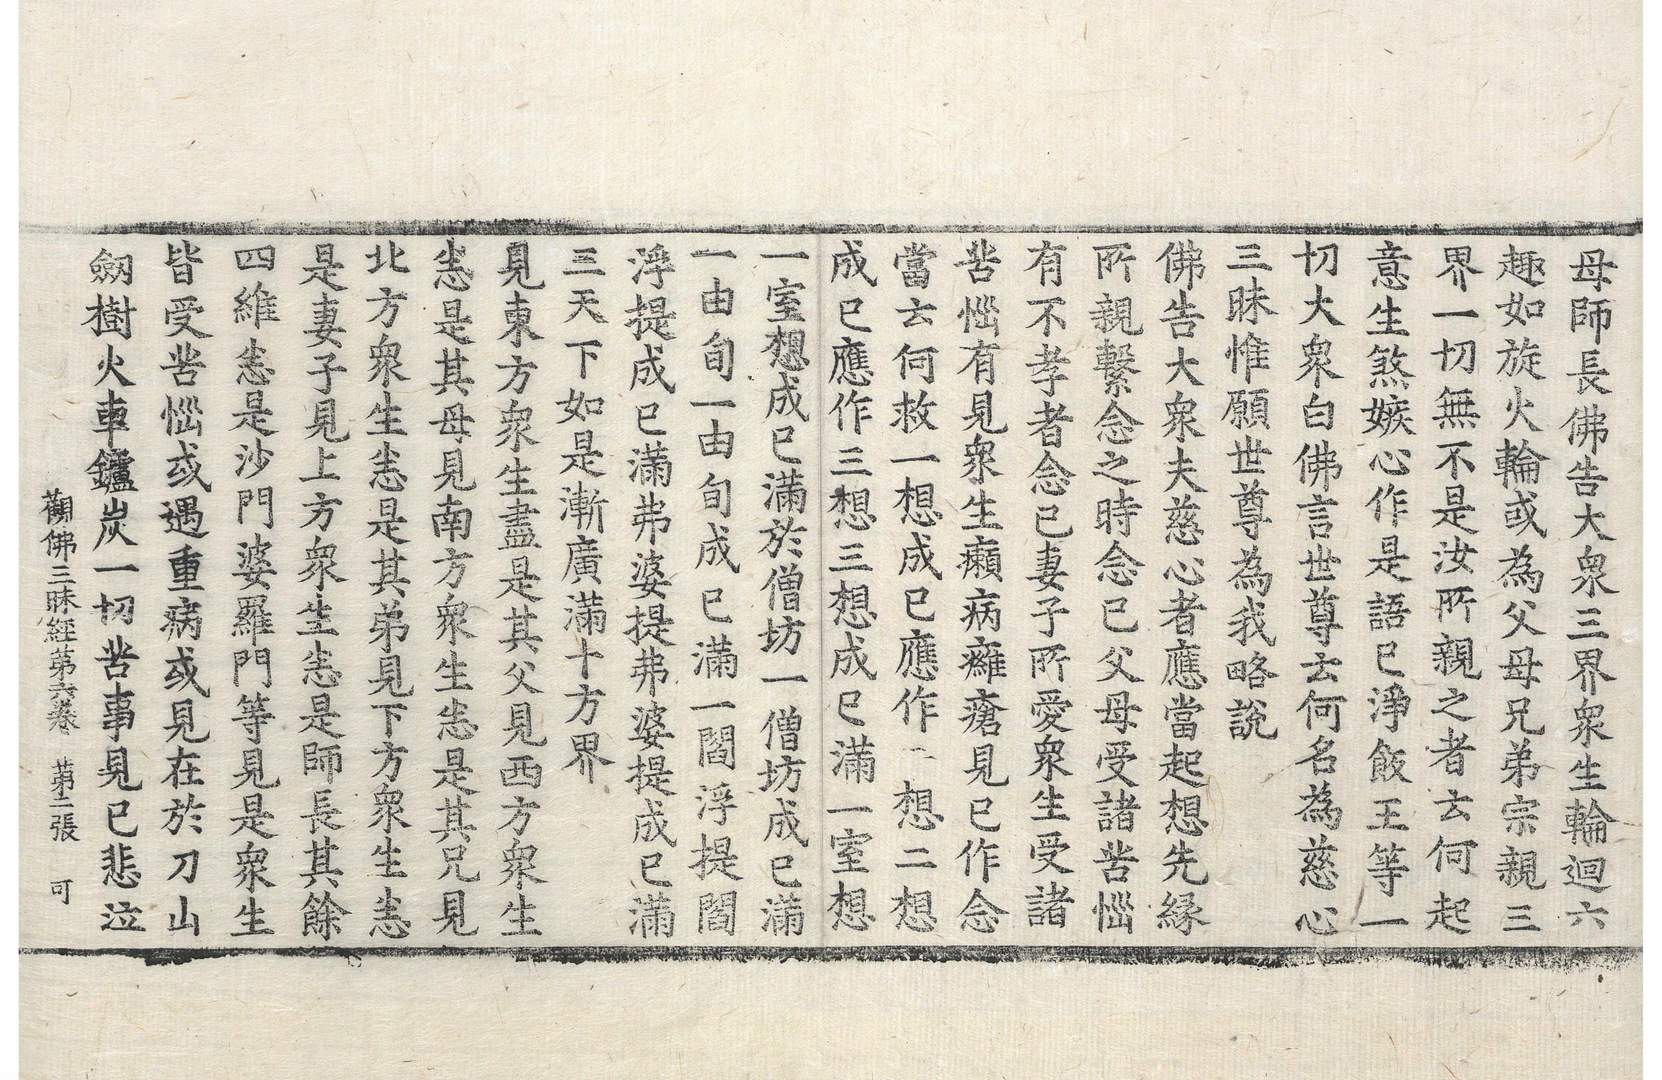 母師長佛告大衆三界衆生輪迴六
趣如旋火輪或為父母兄弟宗親三
界一切無不是汝所親之者云何起
意生煞嫉心作是語已淨飯王等一
切大衆白佛言世尊云何名為慈心
三昧惟願世尊為我略說
佛告大衆夫慈心者應當起想先緣
所親繫念之時念已父母受諸苦惱
有不孝者念已妻子所愛衆生受諸
苦惱有見衆生癩病癰瘡見已作念
當云何救一想成已應作一想二想
成已應作三想三想成已滿一室想
一室想成已滿於僧坊一僧坊成已滿
一由旬一由旬成已滿一閻浮提閻
浮提成已滿弗婆提弗婆提成已滿
三天下如是漸廣滿十方界
見東方衆生盡是其父見西方衆生
悉是其母見南方衆生悉是其兄見
北方衆生悉是其弟見下方衆生悉
是妻子見上方衆生悉是師長其餘
四維悉是沙門婆羅門等見是衆生
皆受苦惱或遇重病或見在於刀山
劒樹火車鑪炭一切苦事見已悲泣
觀佛三昧經第六卷 第二張 可